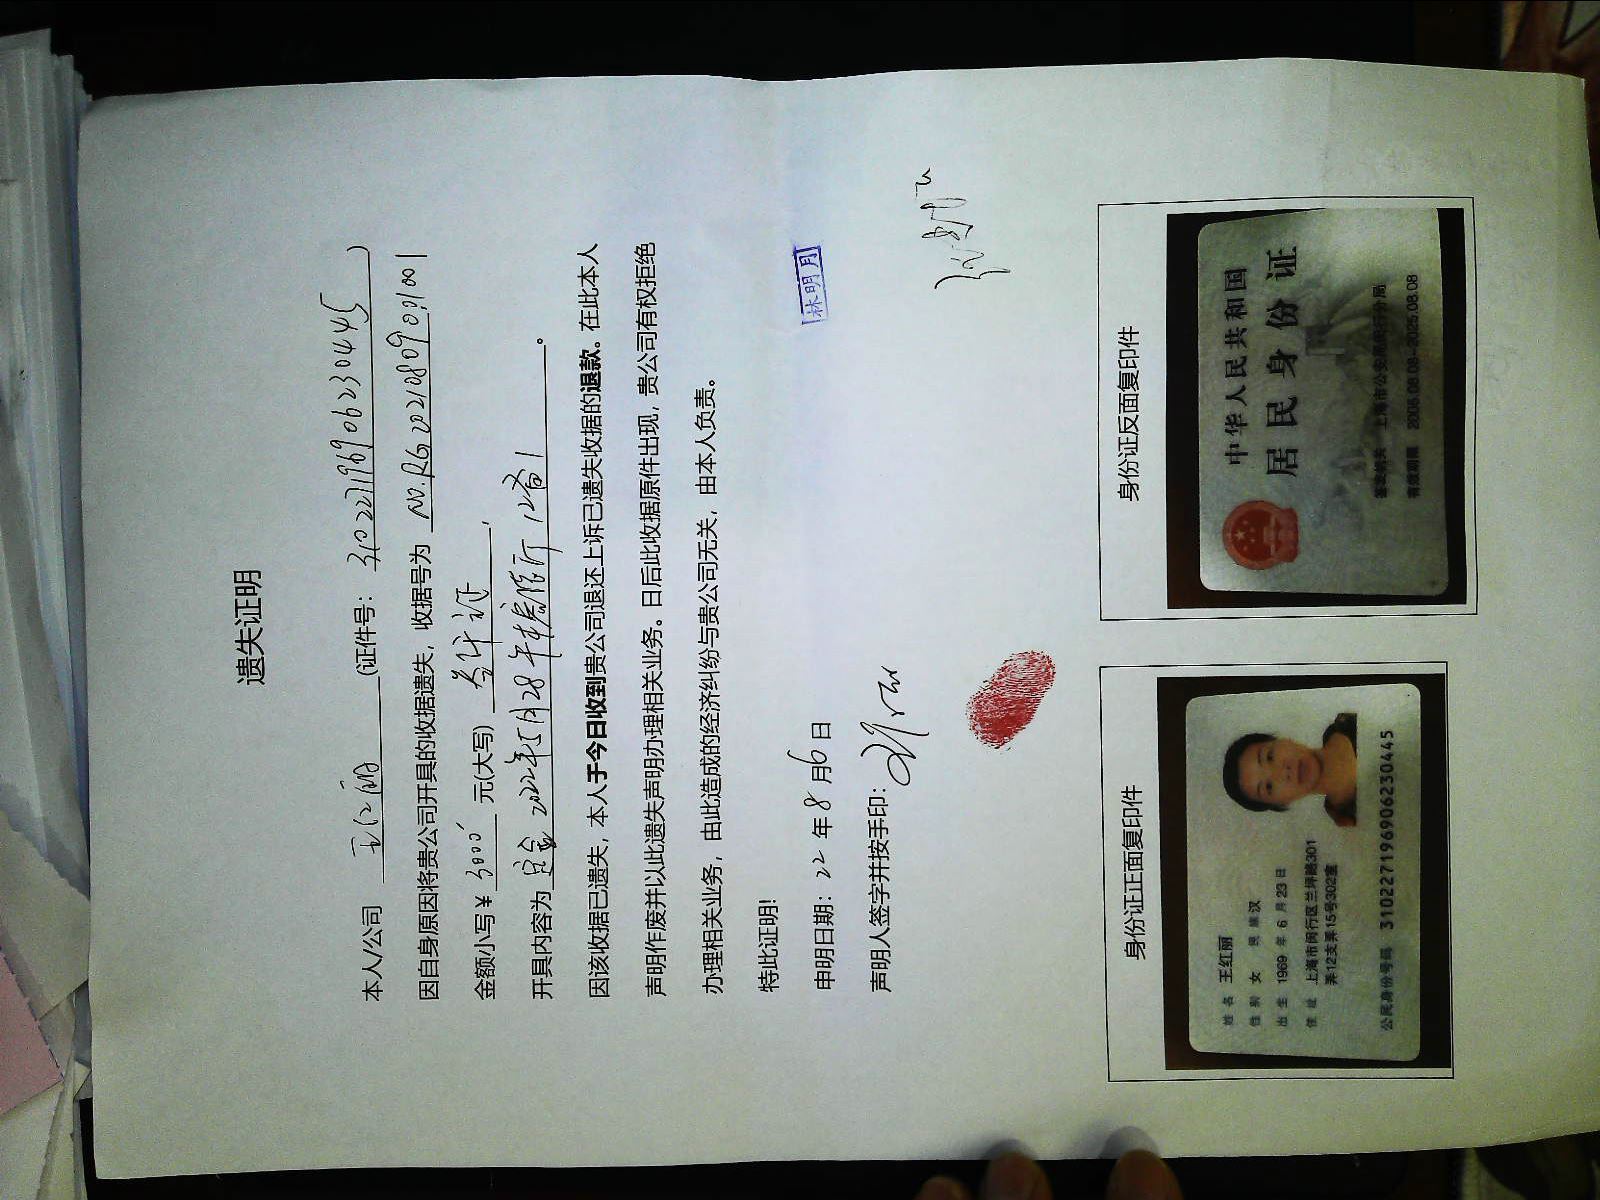 遗失证明
本人/公司 王红丽 (证件号: 310227196906230445 )
因自身原因将贵公司开具的收据遗失, 收据号为 NO.RG20210809001001
金额小写¥ 3000 元(大写) 叁仟元,
开具内容为 定金 2022年5月28
因该收据已遗失, 本人于今日收到贵公司退还上诉已遗失收据的退款。在此本人
声明作废并以此遗失声明办理相关业务。日后此收据原件出现, 贵公司有权拒绝
办理相关业务, 由此造成的经济纠纷与贵公司无关, 由本人负责。
特此证明!
申明日期: 22 年 8 月 6 日
林明月
声明人签字并按手印:
身份证正面复印件
姓名 王红丽
性别 女 民族 汉
出生 1969 年 6 月 23 日
住址 上海市闵行区兰坪路301
弄12支弄15号302室
公民身份号码 310227196906230445
身份证反面复印件
中华人民共和国
居民身份证
签发机关 上海市公安局闵行分局
有效期限 2005.08.08-2025.08.08